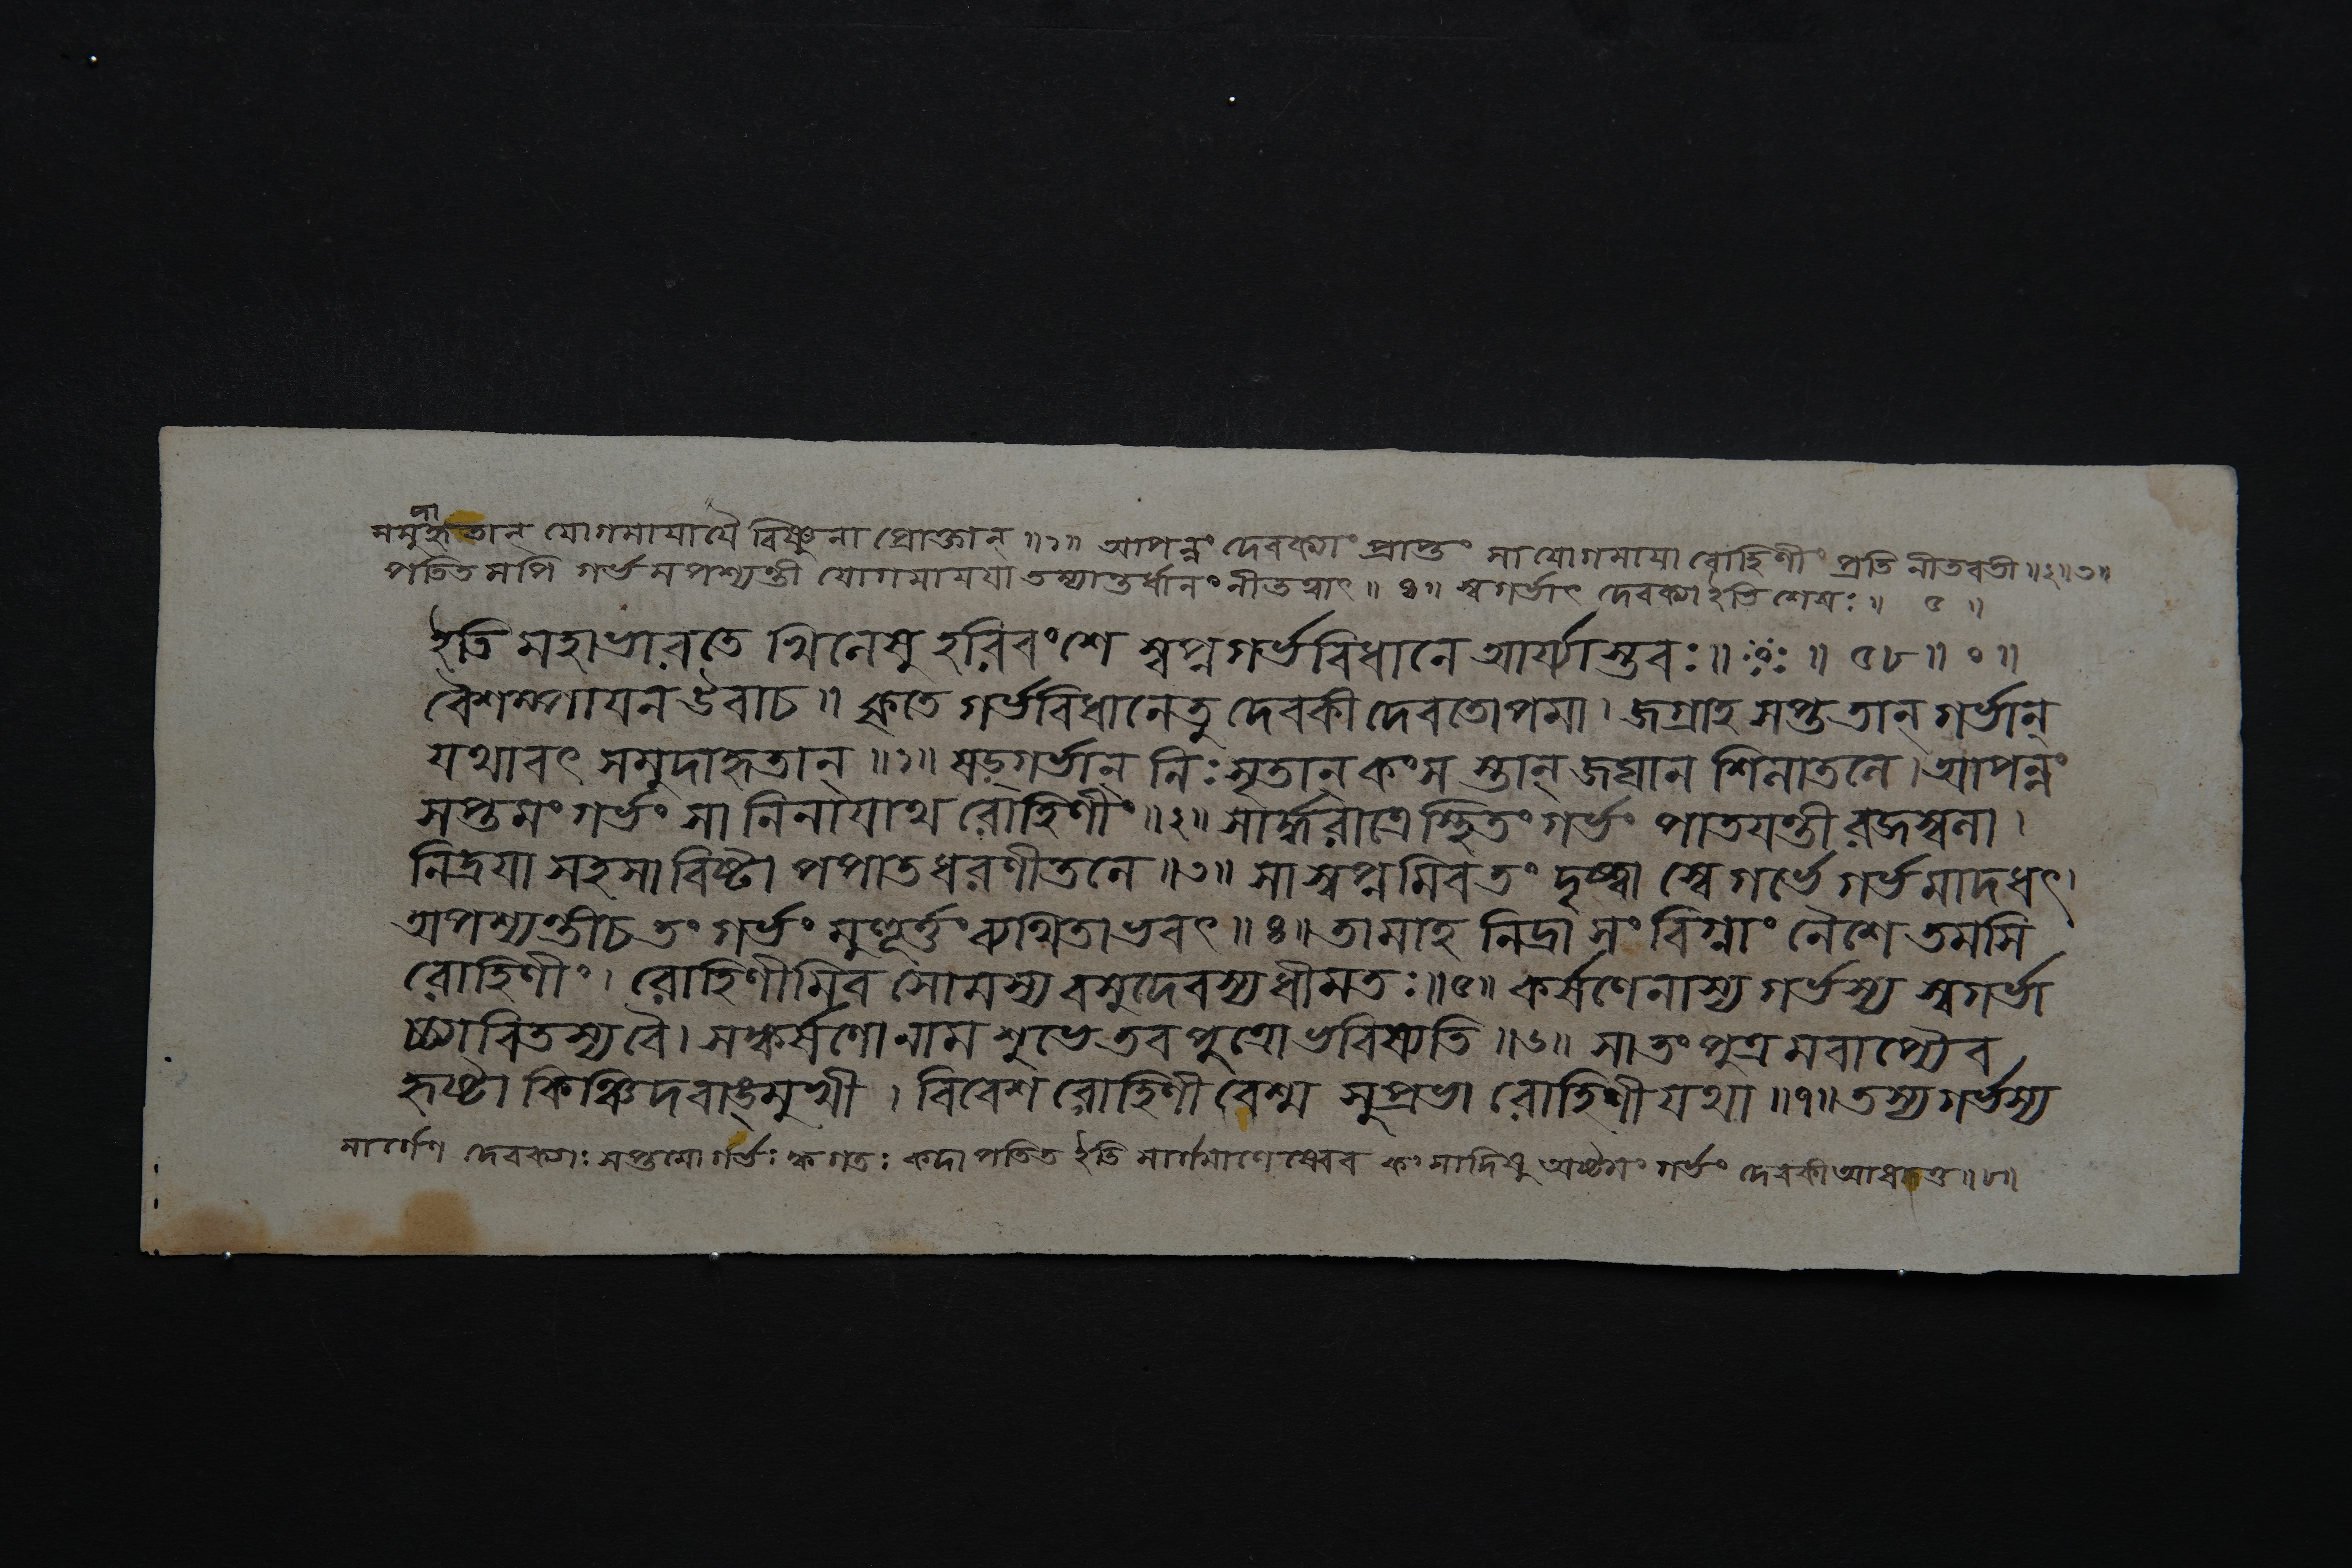 সমুদাহৃতান্ যোগমায়ায়ৈ বিষ্ণুনা প্রোক্তান্ ॥১॥ আপন্নং দেবক্যাং প্রাপ্তং সা যোগমায়া রোহিণীং প্রতি নীতবতী ॥২॥৩॥
পতিতমপি গর্ভমপশ্যন্তী যোগমায়য়া তস্যান্তর্ধানং নীতত্বাৎ ॥ ৪॥ স্বগর্ভাৎ দেবক্যা ইতি শেষঃ ॥ ৫ ॥
ইতি মহাভারতে খিলেষু হরিবংশে স্বপ্নগর্ভবিধানে আর্য্যাস্তবঃ ॥ ॥ ৫৮ ॥ ० ॥
বৈশম্পায়ন উবাচ ॥ কৃতে গর্ভবিধানেতু দেবকী দেবতোপমা । জগ্রাহ সপ্ত তান্ গর্ভান্
যথাবৎ সমুদাহৃতান্ ॥১॥ ষড়্গর্ভান্ নিঃসৃতান্ কংস স্তান্ জঘান শিলাতলে । আপন্নং
সপ্তমং গর্ভং সা নিনায়াথ রোহিণীং ॥২॥ সার্দ্ধরাত্রেস্থিতং গর্ভং পাতয়ন্তী রজস্বলা ।
নিদ্রয়া সহসাবিষ্টা পপাত ধরণীতলে ॥৩॥ সা স্বপ্নমিব তং দৃষ্ট্বা স্বে গর্ভে গর্ভমাদধৎ ।
অপশ্যন্তী চ তং গর্ভং মুহূর্ত্তং ব্যথিতাভবৎ ॥৪॥ তামাহ নিদ্রা সংবিগ্নাং নৈশে তমসি
রোহিণীং । রোহিণীমিব সোমস্য বসুদেবস্য ধীমতঃ ॥৫॥ কর্ষণেনাস্য গর্ভস্য স্বগর্ভা
চ্চাবিতস্য বৈ । সঙ্কর্ষণো নাম শুভে তব পুত্রো ভবিষ্যতি ॥৬॥ সা তং পুত্রমবাপ্যৈব
হৃষ্টা কিঞ্চিদবাঙ্মুখী । বিবেশ রোহিণী বেশ্ম সুপ্রভা রোহিণী যথা ॥৭॥ তস্য গর্ভস্য
মার্গেণ দেবক্যাঃ সপ্তমো গর্ভঃ ক্ব গতঃ কদা পতিত ইতি মার্গমাণেষ্বেব কংসাদিষু অষ্টমং গর্ভং দেবকী আধত্ত ॥৮॥